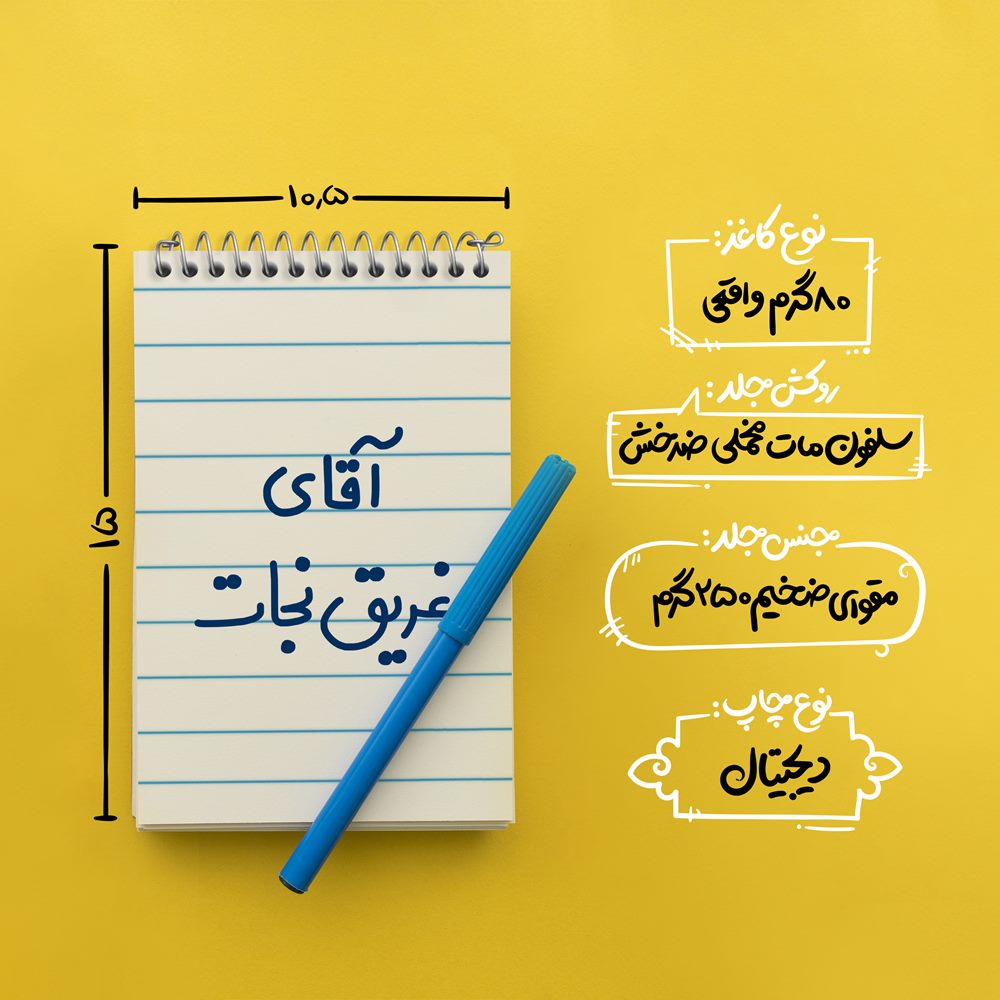 ۱۰,۵
۱۵
آقای
غریق نجات
نوع کاغذ:
۸۰گرم واقعی
روکش جلد:
سلفون مات مخملی ضدخش
جنس جلد:
مقوای ضخیم ۲۵۰گرم
نوع چاپ:
دیجیتال